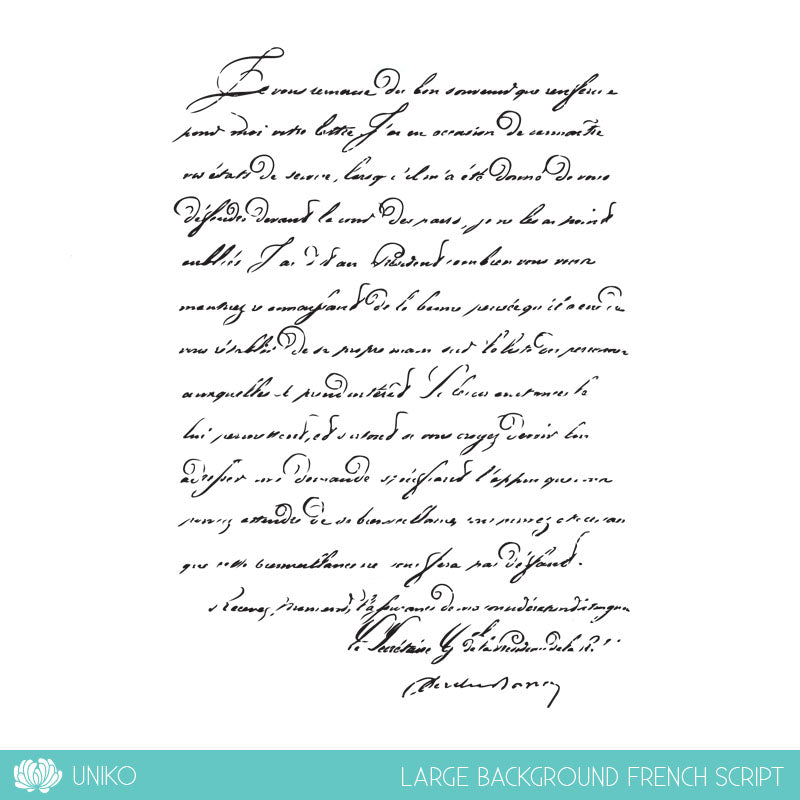 Je vous remercie du bon souvenir que renferme
pour moi votre lettre J'ai eu occasion de connaître
vos états de service, lorsqu'il m'a été donné de vous
défendre devant la cour des pairs, je ne les ai point
oubliés J'ai dit au Président combien vous vous
montriez reconnaissant de la bonne pensée qu'il a eue de
vous rétablir de sa propre main sur la liste des personnes
auxquelles il prend intérêt Si les circonstances le
lui permettent, et surtout si vous croyez devoir lui
adresser une demande spécifiant l'appui que vous
pouvez attendre de sa bienveillance, vous pouvez être certain
que cette bienveillance ne vous fera pas défaut.
Recevez, Monsieur, l'assurance de ma considération distinguée
Le Secrétaire Gal de la Présidence de la
UNIKO
LARGE BACKGROUND FRENCH SCRIPT